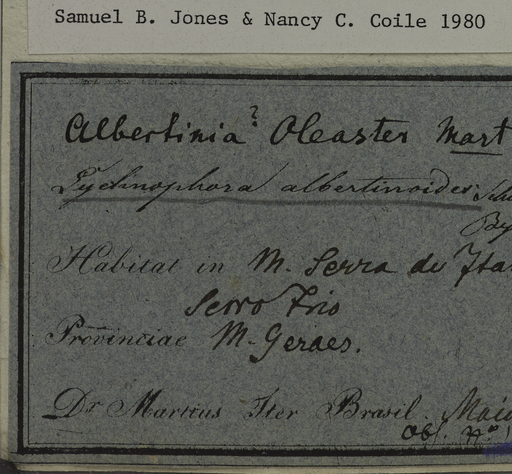 Samuel B. Jones & Nancy C. Coile 1980
Albertinia? Oleaster Mart
Lychnophora albertinoides
Habitat in M. Serra do
Serro Frio
Provinciae M. Geraes.
Dr Martius Iter Brasil.
Obs. No